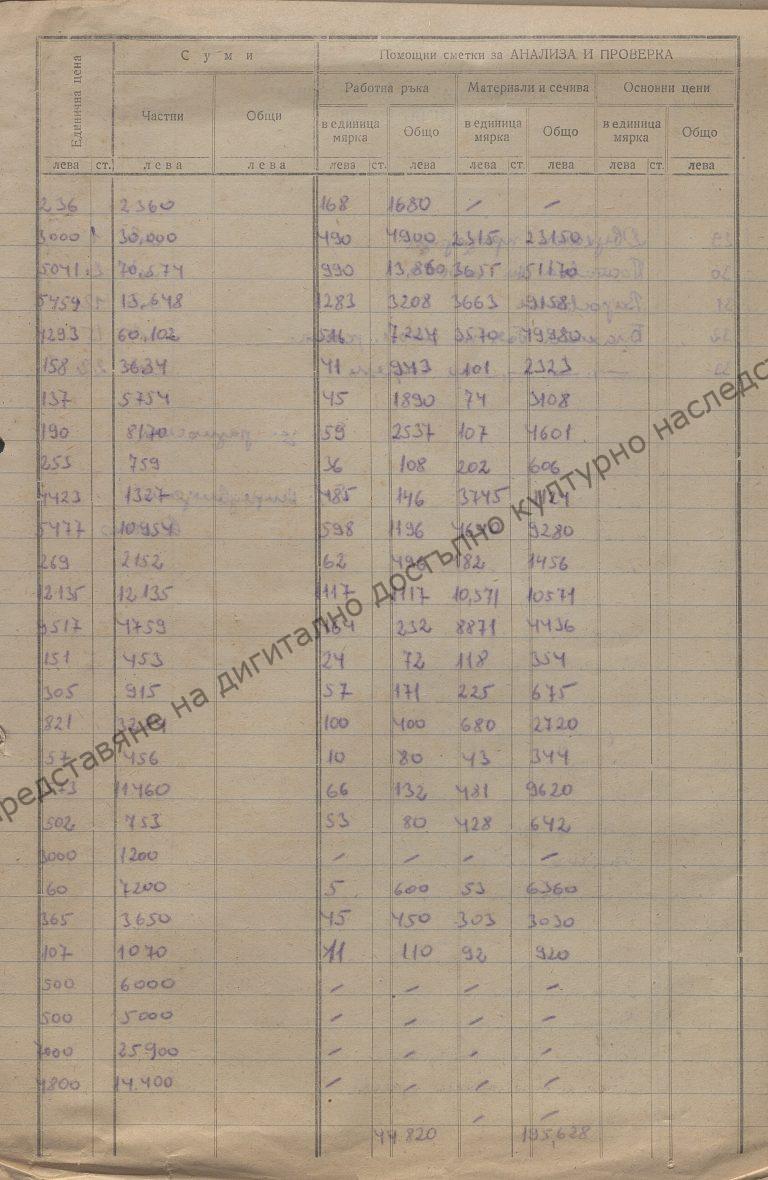 Единична цена
Суми
Помощни сметки за АНАЛИЗА И ПРОВЕРКА
Частни Общи
Работна ръка Материали и сечива Основни цени
в единица мярка Общо в единица мярка Общо в единица мярка Общо
лева ст. лева лева лева ст. лева лева ст. лева лева ст. лева
236 2360 168 1680 – –
3000 30,000 490 4900 2315 23150
5041 70,574 990 13,860 3655 51170
5459 13,648 1283 3208 3663 9158
4293 60,102 516 7224 3570 49980
158 3634 41 943 101 2323
137 5754 45 1890 74 3108
190 8170 59 2537 107 4601
253 759 36 108 202 606
4423 1327 485 146 3745 1124
5477 10954 598 1196 4640 9280
269 2152 62 496 182 1456
12135 12.135 1117 1117 10,571 10571
9517 4759 464 232 8871 4436
151 453 24 72 118 354
305 915 57 171 225 675
821 100 400 680 2720
57 456 10 80 43 344
11460 66 132 481 9620
502 753 53 80 428 642
3000 1200 – – – –
60 7200 5 600 53 6360
365 3650 45 450 303 3030
107 1070 11 110 92 920
500 6000 – – – –
500 5000 – – – –
25900 – – – –
4800 14.400 – – – –
– –
44820 195,628
представяне на дигитално достъпно културно наследст